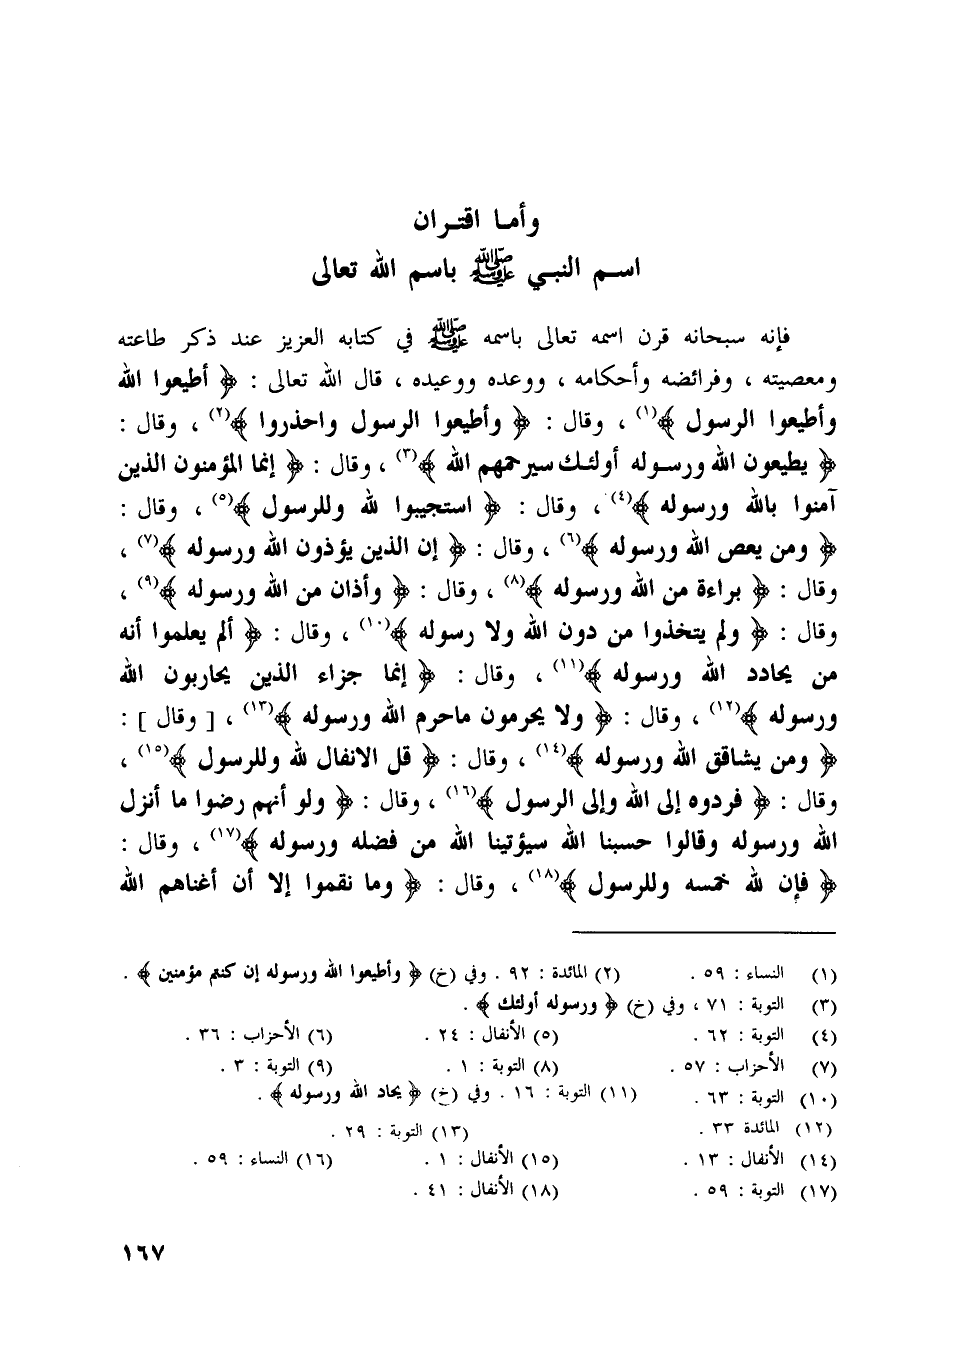 وأمـا اقتـران
اسـم النبـي ﷺ باسم الله تعالى
فإنه سبحانه قرن اسمه تعالى باسمه ﷺ في كتابه العزيز عند ذكر طاعته
ومعصيته ، وفرائضه وأحكامه ، ووعده ووعيده ، قال الله تعالى : ﴿ أطيعوا الله
وأطيعوا الرسول ﴾(١) ، وقال : ﴿ وأطيعوا الرسول واحذروا ﴾(٢) ، وقال :
﴿ يطيعون الله ورسوله أولئك سيرحمهم الله ﴾(٣) ، وقال : ﴿ إنما المؤمنون الذين
آمنوا بالله ورسوله ﴾(٤) ، وقال : ﴿ استجيبوا لله وللرسول ﴾(٥) ، وقال :
﴿ ومن يعص الله ورسوله ﴾(٦) ، وقال : ﴿ إن الذين يؤذون الله ورسوله ﴾(٧) ،
وقال : ﴿ براءة من الله ورسوله ﴾(٨) ، وقال : ﴿ وأذان من الله ورسوله ﴾(٩) ،
وقال : ﴿ ولم يتخذوا من دون الله ولا رسوله ﴾(١٠) ، وقال : ﴿ ألم يعلموا أنه
من يحادد الله ورسوله ﴾(١١) ، وقال : ﴿ إنما جزاء الذين يحاربون الله
ورسوله ﴾(١٢) ، وقال : ﴿ ولا يحرمون ماحرم الله ورسوله ﴾(١٣) ، [ وقال ] :
﴿ ومن يشاقق الله ورسوله ﴾(١٤) ، وقال : ﴿ قل الانفال لله وللرسول ﴾(١٥) ،
وقال : ﴿ فردوه إلى الله وإلى الرسول ﴾(١٦) ، وقال : ﴿ ولو أنهم رضوا ما أنزل
الله ورسوله وقالوا حسبنا الله سيؤتينا الله من فضله ورسوله ﴾(١٧) ، وقال :
﴿ فإن لله خمسه وللرسول ﴾(١٨) ، وقال : ﴿ وما نقموا إلا أن أغناهم الله
(١) النساء : ٥٩ . (٢) المائدة : ٩٢ . وفي (خ) ﴿ وأطيعوا الله ورسوله إن كنتم مؤمنين ﴾ .
(٣) التوبة : ٧١ ، وفي (خ) ﴿ ورسوله أولئك ﴾ .
(٤) التوبة : ٦٢ . (٥) الأنفال : ٢٤ . (٦) الأحزاب : ٣٦ .
(٧) الأحزاب : ٥٧ . (٨) التوبة : ١ . (٩) التوبة : ٣ .
(١٠) التوبة : ٦٣ . (١١) التوبة : ١٦ . وفي (خ) ﴿ يحاد الله ورسوله ﴾ .
(١٢) المائدة ٣٣ . (١٣) التوبة : ٢٩ .
(١٤) الأنفال : ١٣ . (١٥) الأنفال : ١ . (١٦) النساء : ٥٩ .
(١٧) التوبة : ٥٩ . (١٨) الأنفال : ٤١ .
١٦٧